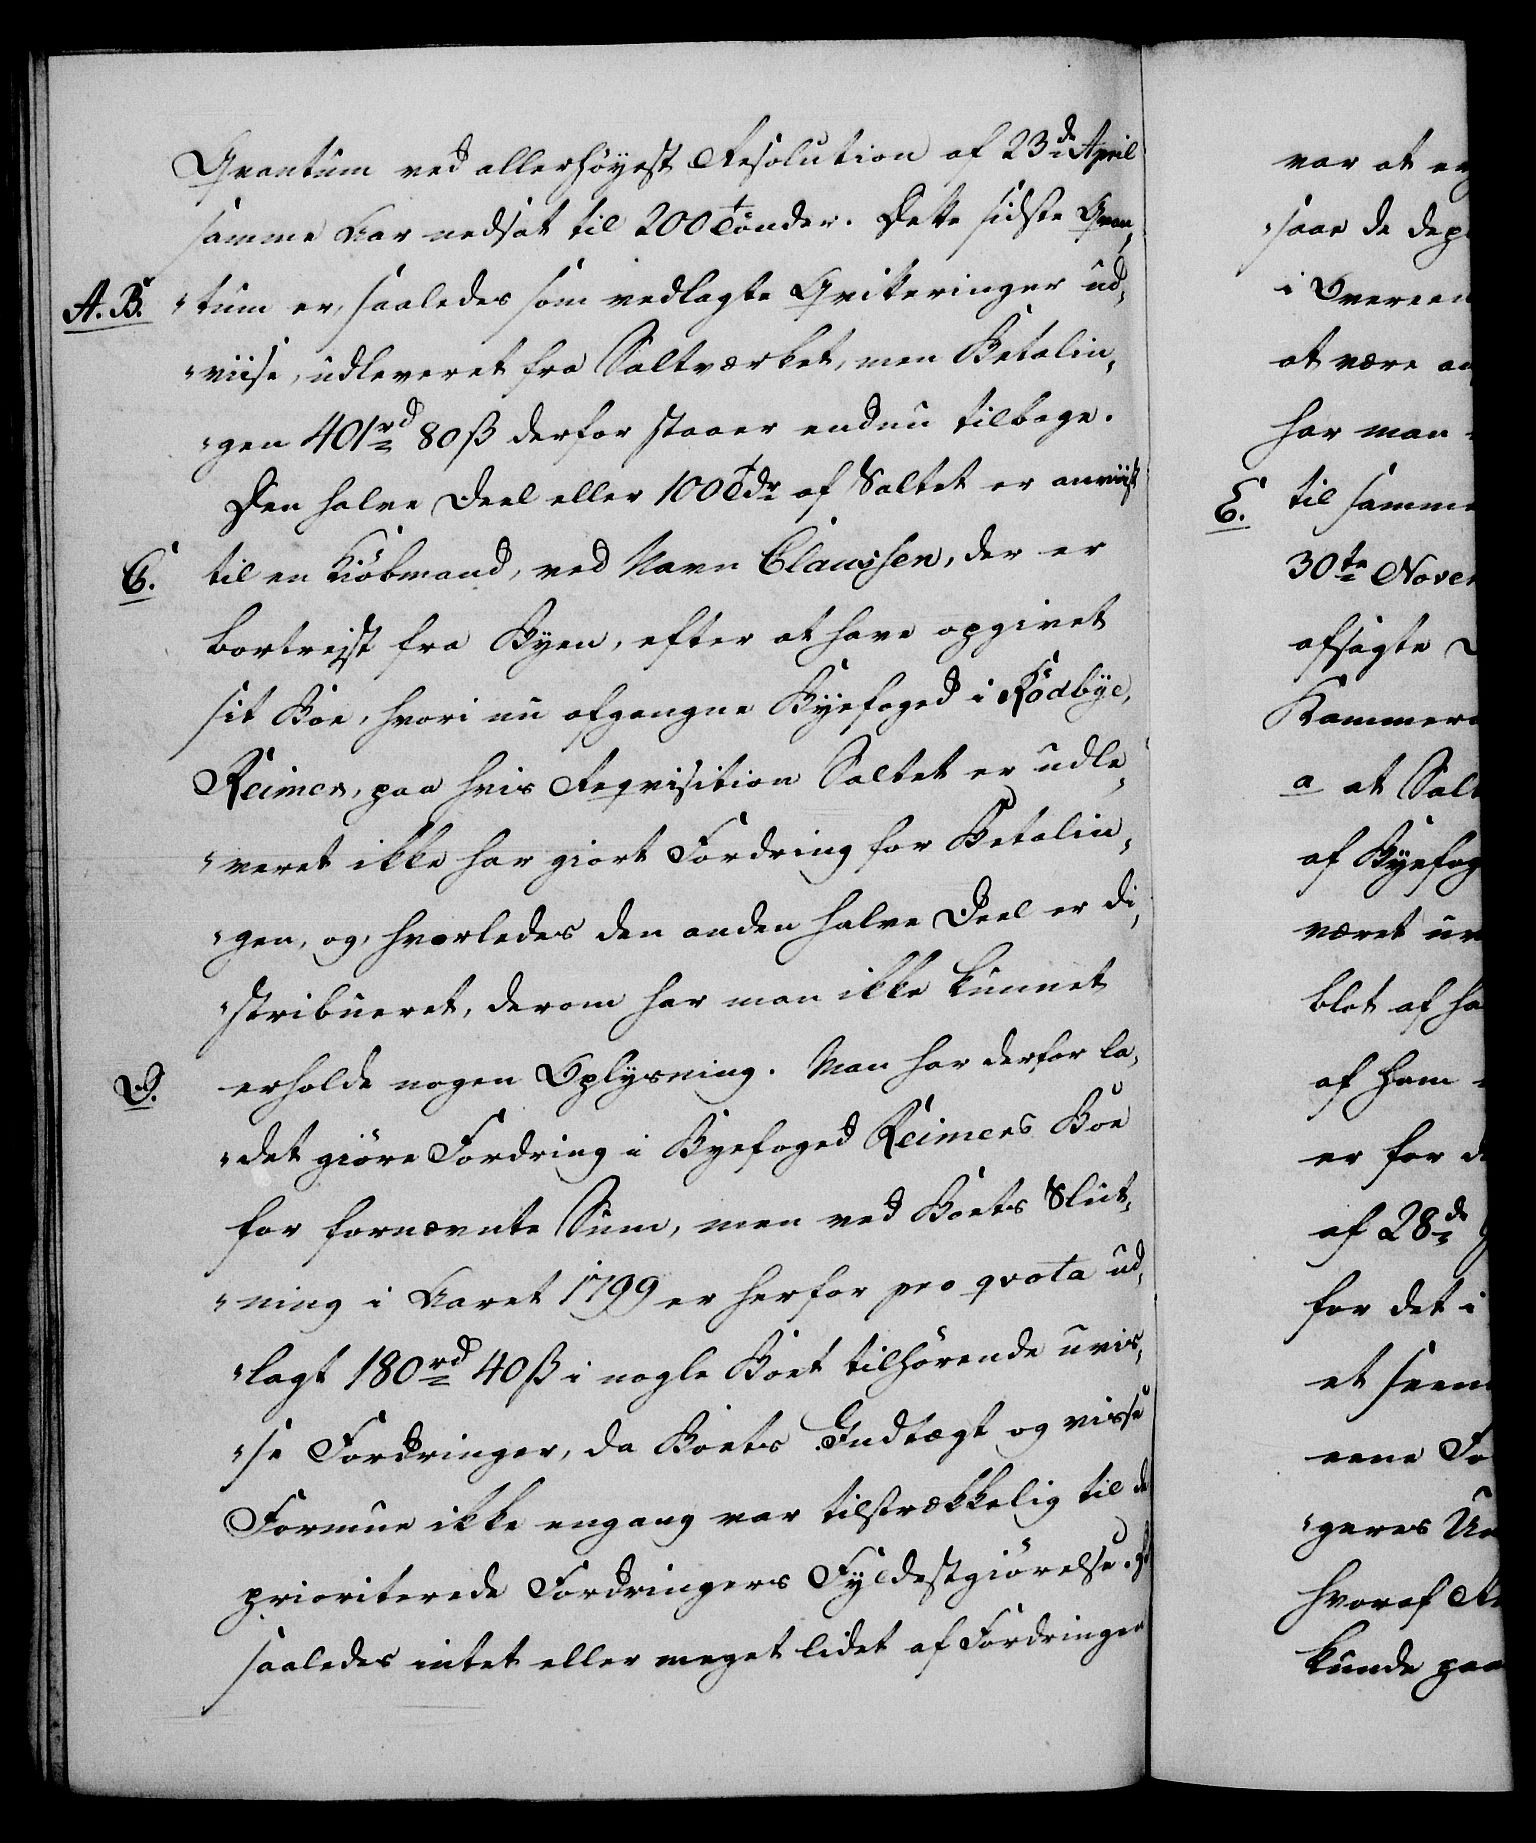 Qvantum ved allerhöyest Resolution af 23de April
samme Aar nedsat til 200 Tönder. Dette sidste Qvan„
A. B. „tum er, saaledes som vedlagte Qvitteringer ud„
„viise, udleveret fra Saltværket, men Betalin„
„gen 401 rd 80 ß derfor staaer endnu tilbage.
Den halve Deel eller 100 Tdr af Saltet er anviist
C. til en Kiöbmand, ved Navn Claussen, der er
bortrejst fra Byen, efter at have opgivet
sit Boe, hvori nu afgangne Byefoged i Rödbye,
Reimer, paa hvis Reqvisition Saltet er udle„
„veret ikke har giort Fordring for Betalin„
„gen, og, hvorledes den anden halve Deel er di„
„stribueret, derom har man ikke kunnet
D. erholde nogen Oplysning. Man har derfor la„
„det giöre Fordring i Byefoged Reimers Boe
for fornævnte Sum, men ved Boets Slut„
„ning i Aaret 1799 er herfor pro qvota ud„
„lagt 180 rd 40 ß i nogle Boet tilhörende uvis„
„se Fordringer, da Boets Indtægt og visse
Formue ikke engang var tilstrækkelig til de
prioriterede Fordringers Fyldestgiörelse.
saaledes intet eller meget lidet af Fordringen
var at er
„saae de dep
i Overeen
at være an
har man
E. til samme
30te Novem
afsagte
Kammer
a at Salt
af Byefog
været un
blot af ha
af ham
er for d
af 28de
for det i
et seen
eene Fo
„geres Un
hvoraf
kunde paa